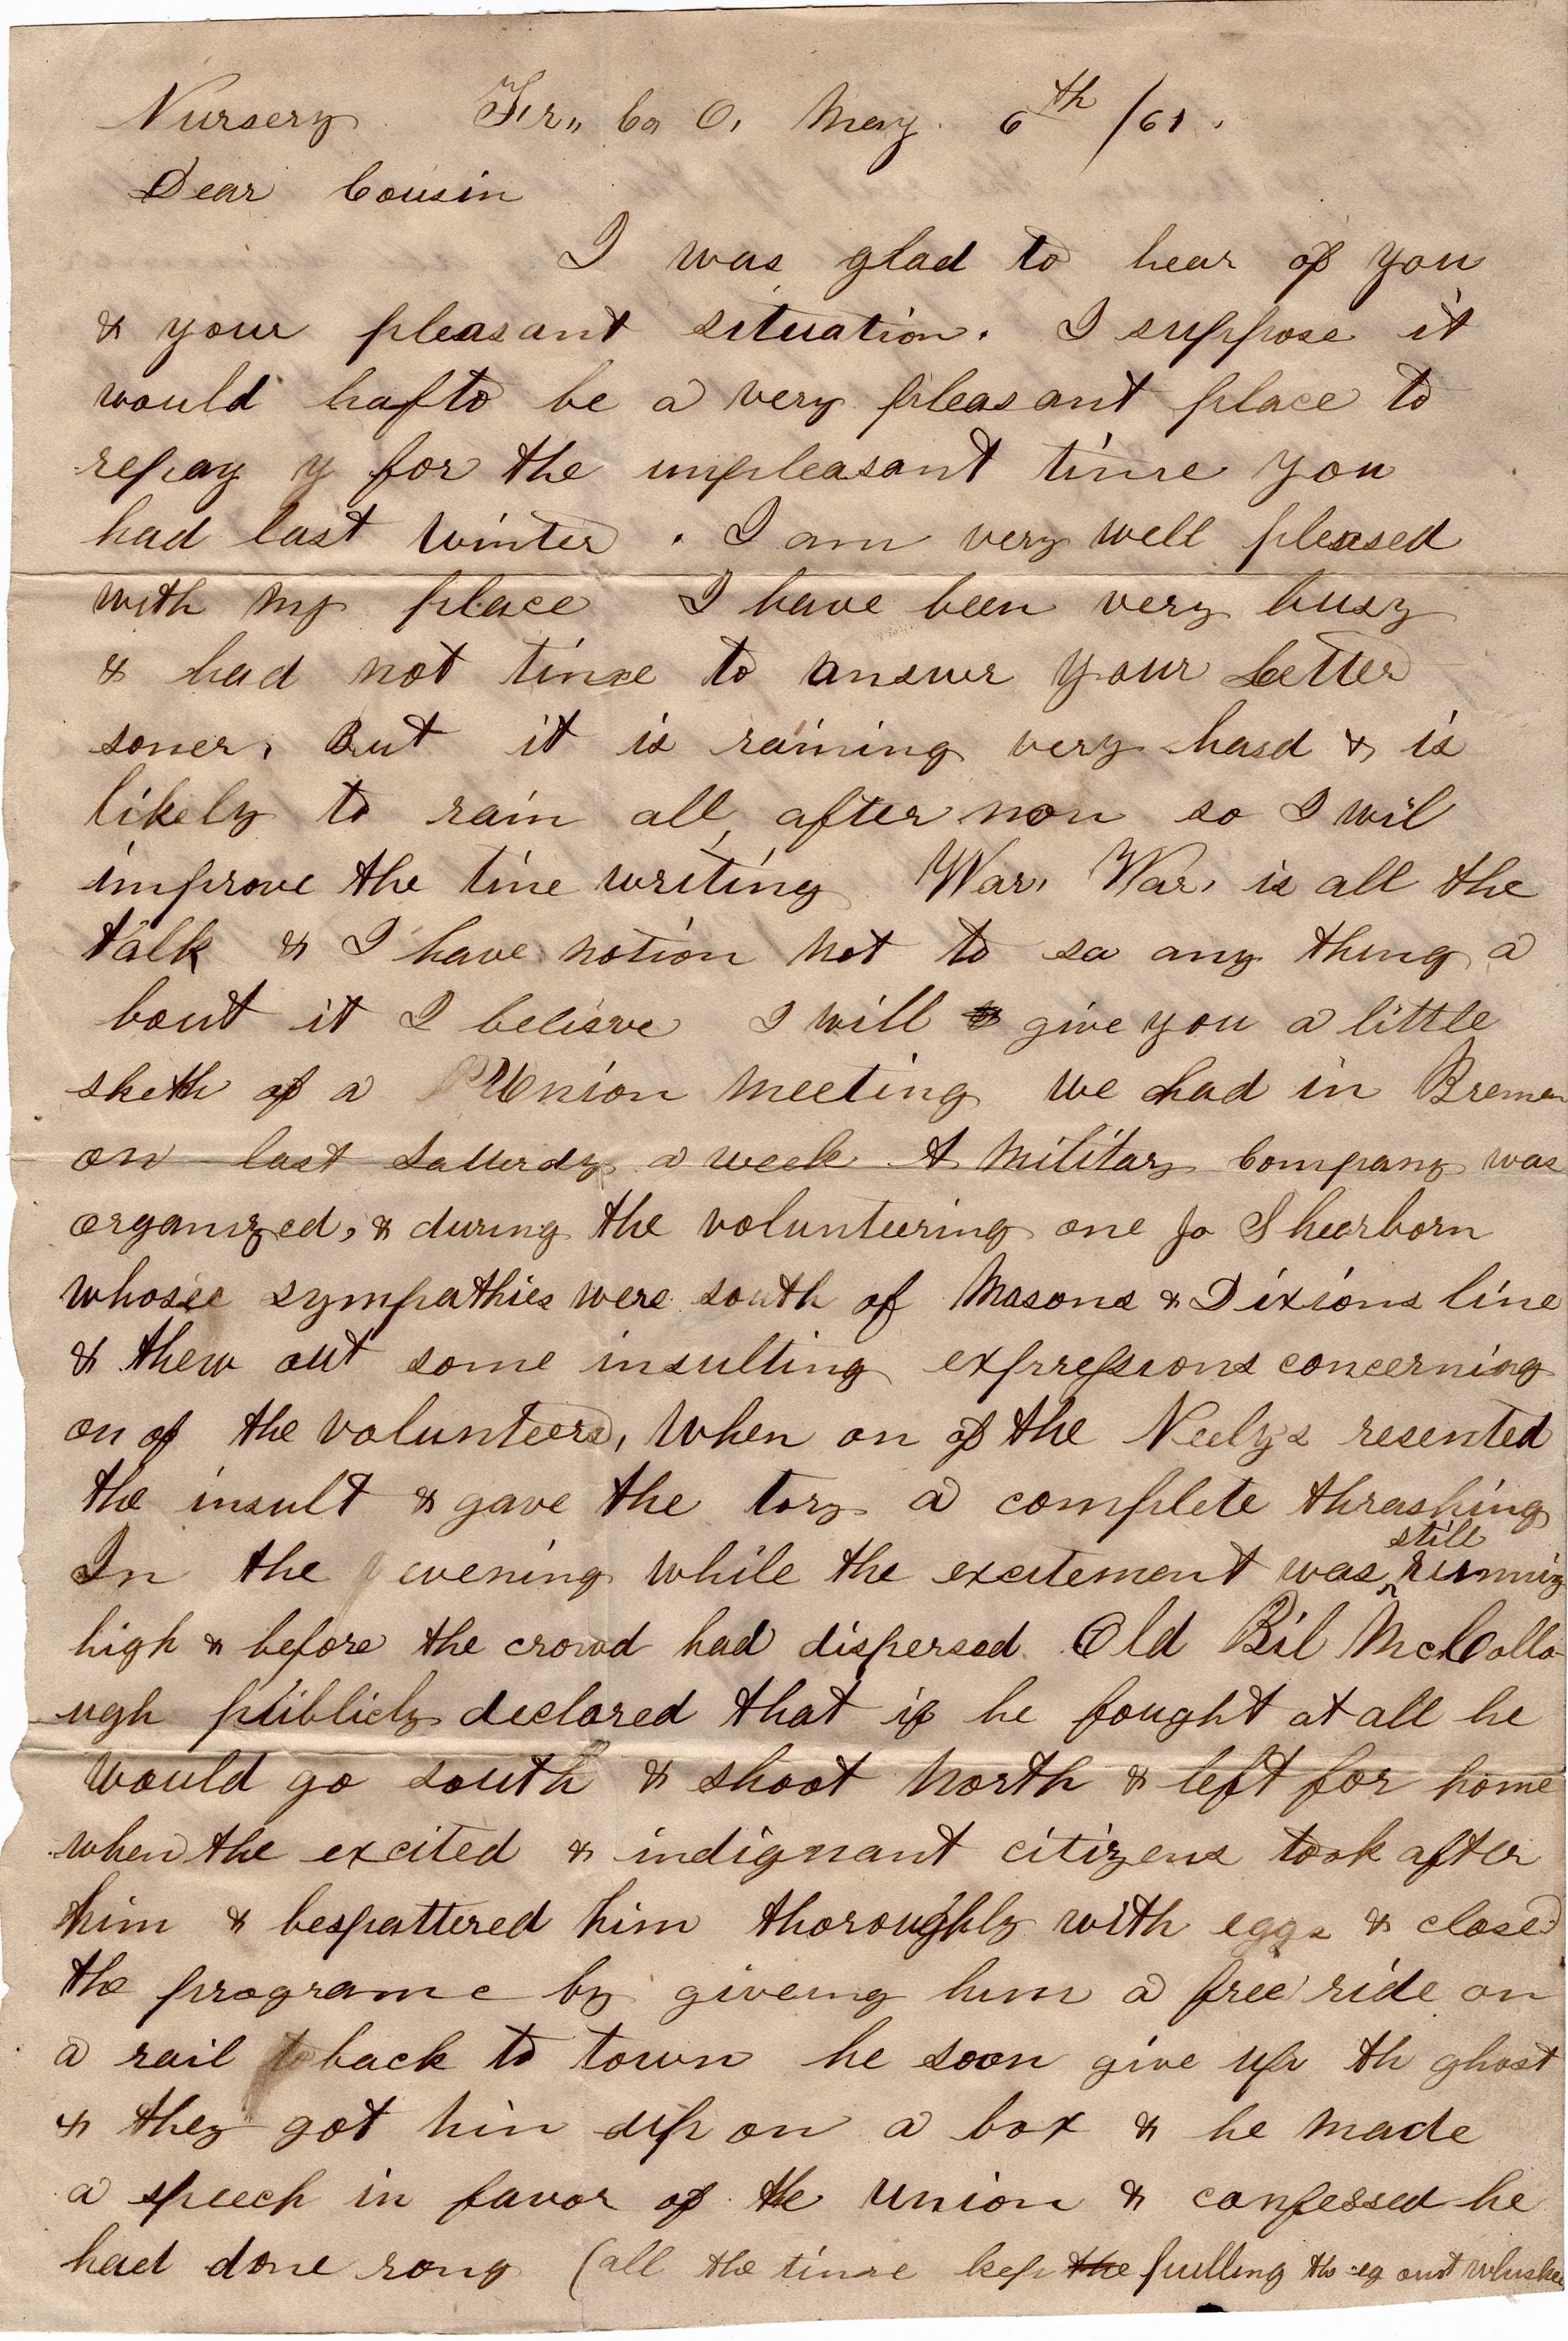 Nursery Fr,, Co O, May 6th /61.
Dear Cousin
I was glad to hear of you
& your pleasant situation. I suppose it
would hafto be a very pleasant place to
repay y for the unpleasant time you
had last winter. I am very well pleased
with my place I have been very busy
& had not time to answer your Letter
soner, But it is raining very hard & is
likely to rain all after noon so I wil
improve the tine writing War, War, is all the
talk & I have notion not to sa any thing a
bout it I believe I will give you a little
sketh of a Union meeting we had in Bremen
on last Saturdy a week A Military Company was
organized, & during the volunteering one Jo Shearborn
whose sympathies were south of Masons & Dixions line
& thew out some insulting expressions concerning
on of the volunteers, when on of the Neelys resented
the insult & gave the tory a complete thrashing
In the evening while the excitement was still running
high & before the crowd had dispersed. Old Bil McCollo-
ugh publicly declared that if he fought at all he
would go south & shoot North & left for home
when the excited & indignant citizens took after
him & bespattered him thoroughly with eggs & closed
the programe by giveing him a free ride on
a rail back to town he soon give up th ghost
& they got him up on a box & he made
a speech in favor of the union & confessed he
had done rong (all the time kep the pulling th eg out